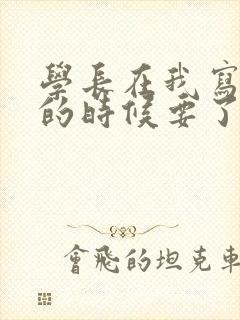 學長在我寫
的時候要了
會飛的坦克車